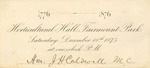 1776 1876
Horticultural Hall, Fairmount Park
Saturday, December 18th 1875
at one o'clock P.M.
Hon. J H Caldwell M.C.